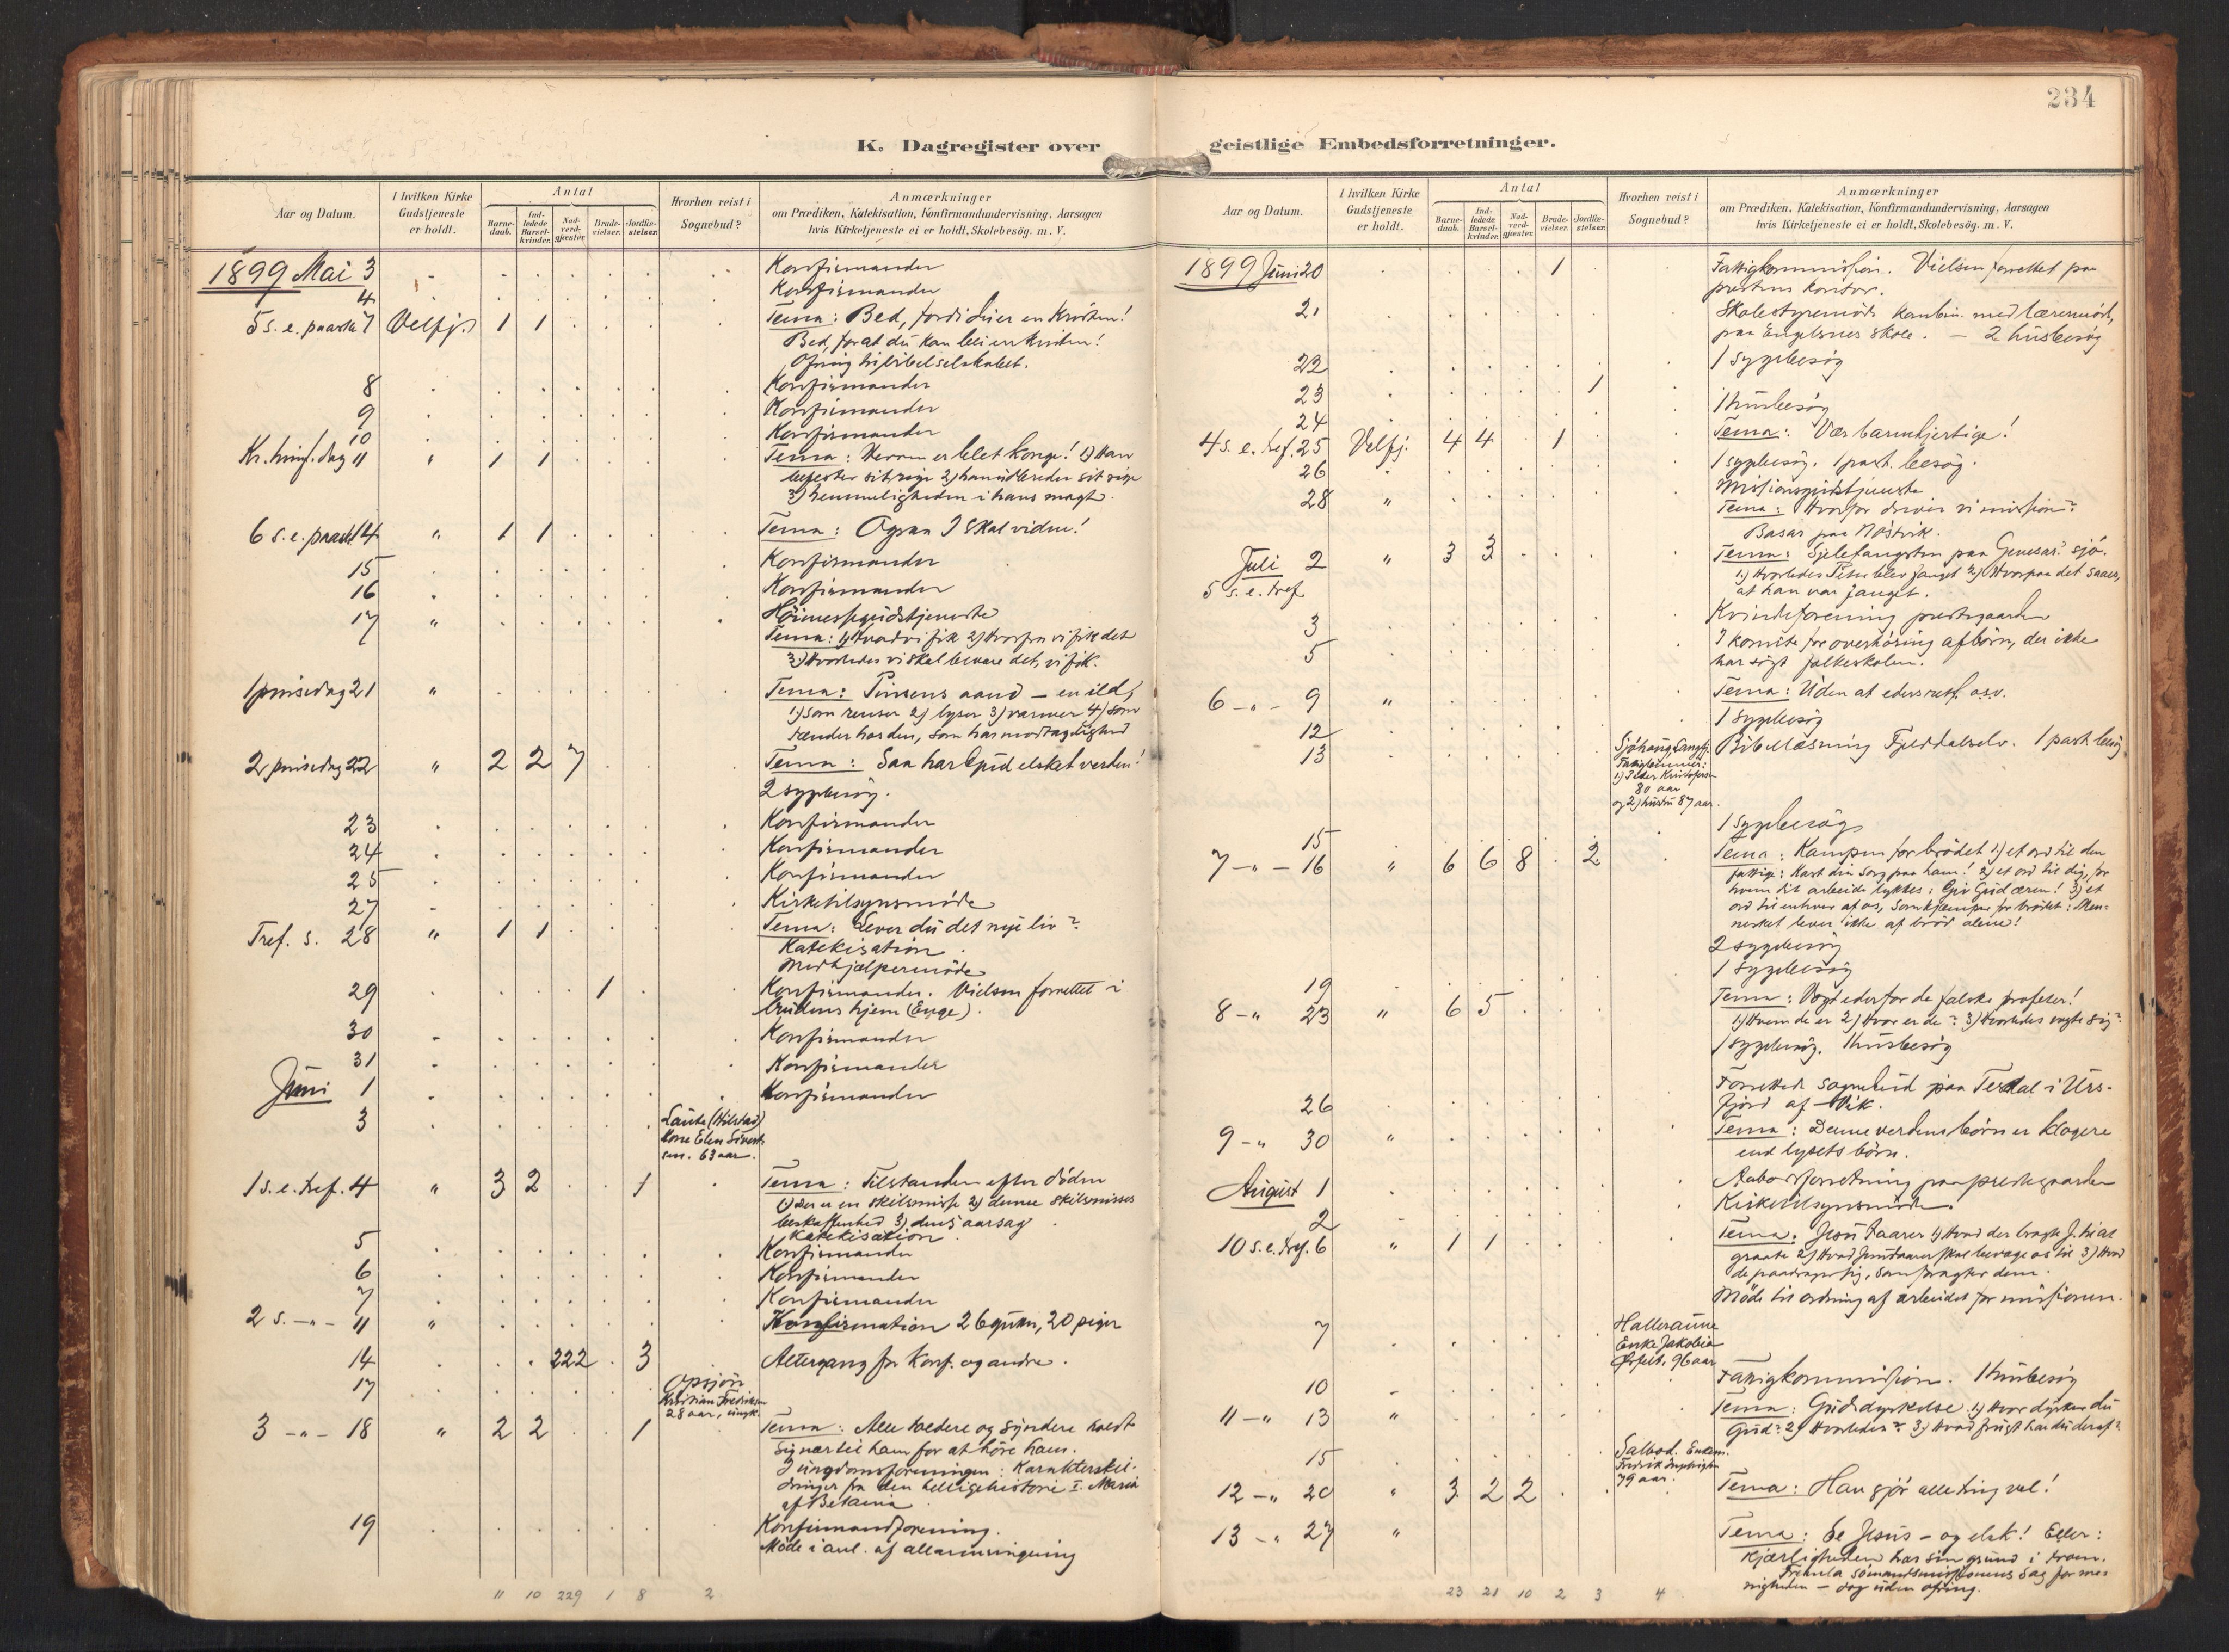 234
K. Dagregister over geistlige Embedsforretninger.
Aar og Datum. I hvilken Kirke Gudstjeneste er holdt. Antal Barnedaab. Indledede Barselkvinder. Nadverdgjæster. Brudevielser. Jordfæstelser. Hvorhen reist i Sognebud? Anmærkninger om Prædiken, Katekisation, Konfirmandundervisning, Aarsagen hvis Kirketjeneste ei er holdt, Skolebesög. m. V.
1899 Mai 3 Konfirmander
4 Konfirmander
5 s. e. paaske 7 Velfj. 1 1 Tema: Bed, fordi du er en kristen!
Bed, forat du kan bli en kristen!
Ofring til bibelselskabet.
8 Konfirmander
9 Konfirmander
10 Konfirmander
Kr. himf. dag 11 " 1 1 Tema: Herren er blet konge! 1) Han
befester sit rige 2) han udbreder sit rige
3) hemmeligheden i hans magt.
6 s. e. paaske 14 " 1 1 Tema: Ogsaa I skal vidne!
15 Konfirmander
16 Konfirmander
17 " Höimessegudstjeneste
Tema: 1) Hvad vi fik 2) Hvorfra vi fik det
3) Hvorledes vi skal bevare det, vi fik.
1 pinsedag 21 " Tema: Pinsens aand – en ild,
1) Som renser 2) lyser 3) varmer 4) som
tænder hos den, som har modtagelighed
2 pinsedag 22 " 2 2 7 Tema: Saa har Gud elsket verden!
2 sygebesög.
23 Konfirmander
24 Konfirmander
25 Konfirmander
27 Kirketilsynsmöde
Tref. s. 28 " 1 1 Tema: Lever du det nye liv?
Katekisation
Medhjælpermöde
29 1 Konfirmander. Vielsen forrettet i
brudens hjem (Enge).
30 Konfirmander
31 Konfirmander
Juni 1 Konfirmander
3 (Hilstad)
Kone Elen
63 aar.
1 s. e. tref. 4 " 3 2 1 Tema: Tilstanden efter döden
1) der er en skilsmisse 2) denne skilsmisses
beskaffenhed 3) dens aarsag
Katekisation
5 Konfirmander
6 Konfirmander
7 Konfirmander
2 s. – " – 11 " Konfirmation 26 gutter, 20 piger
14 222 3 Altergang for konf. og andre.
17 Opsjön
Kristian Fredriksen
28 aar, ungk.
3 – " – 18 " 2 2 1 Tema: Alle toldere og syndere holdt
sig nær til ham for at höre ham.
I ungdomsforeningen: Karakterskil-
dringer fra den hellige historie I. Maria
af Betania
19 Konfirmandforening.
Möde i anl. af
11 10 229 1 8 2
Aar og Datum. I hvilken Kirke Gudstjeneste er holdt. Antal Barnedaab. Indledede Barselkvinder. Nadverdgjæster. Brudevielser. Jordfæstelser. Hvorhen reist i Sognebud? Anmærkninger om Prædiken, Katekisation, Konfirmandundervisning, Aarsagen hvis Kirketjeneste ei er holdt, Skolebesög. m. V.
1899 Juni 20 1 Fattigkommission. Vielsen forrettet paa
prestens kontor.
21 Skolestyremöde kombin. med læremöde,
paa skole. – 2 husbesög
22 1 sygebesög
23 1
24 1 husbesög
4 s. e. tref. 25 Velfj. 4 4 1 Tema: Vær barmhjertige!
26 1 sygebesög. 1 past. besög.
28 " Missionsgudstjeneste
Tema: Hvorfor driver vi mission?
Basar paa
Juli 2 " 3 3 Tema: Sjelefangsten paa Genesar. sjö.
5 s. e. tref 1) Hvorledes Peter blev fanget 2) Hvorpaa det saaes,
at han var fanget.
3 Kvindeforening prestegaarden
5 I komite for overhöring af börn, der ikke
har sögt folkeskolen.
6 – " – 9 " Tema: Uden at eders retf. osv.
12 1 sygebesög
13 Sjöhaug
80 aar
og 2) hustru 87 aar. Bibellæsning 1 past. besög
15 1 sygebesög
7 – " – 16 " 6 6 8 2 Tema: Kampen for brödet 1) et ord til den
fattige: Kast din sorg paa ham! 2) et ord til dig, for
hvem dit arbeide lykkes: Giv Gud æren! 3) et
ord til enhver af os, som kjæmper for brödet: Men-
nesket lever ikke af bröd alene!
2 sygebesög
19 1 sygebesög
8 – " 23 " 6 5 Tema: Vogt eder for de falske profeter!
1) Hvem de er 2) Hvor er de? 3) Hvorledes vogte sig?
1 sygebesög. 1 husbesög
26 Forrettede sognebud paa i Urs-
fjord af Vik.
9 – " 30 " Tema: Denne verdens börn er klogere
end lysets börn.
August 1 Aabodsforretning paa prestegaarden
2 Kirketilsynsmöde.
10 s. e. tref. 6 " 1 1 Tema. Jesu taarer 1) Hvad der bragte J. til at
graate 2) Hvad Jesu taarer skal bevæge os til 3) Hvad
de paadrager sig, som foragter dem.
Möde til ordning af arbeidet for missionen.
7 Halleraune
Enke Jakobia
96 aar
10 Fattigkommission. 1 husbesög
11 – " 13 " Tema: Gudsdyrkelse. 1) Hvor dyrker du
Gud? 2) Hvorledes? 3) Hvad frugt har du deraf?
15 Salbod. Enkem.
Fredrik
79 aar.
12 – " 20 " 3 2 2 Tema: Han gjör alle ting vel!
13 – " 27 " Tema: Se Jesus – og elsk! Eller:
Kjærligheden har sin grund i troen.
sömandsmissionens sag for me-
nigheden – dog uden ofring.
23 21 10 2 3 4